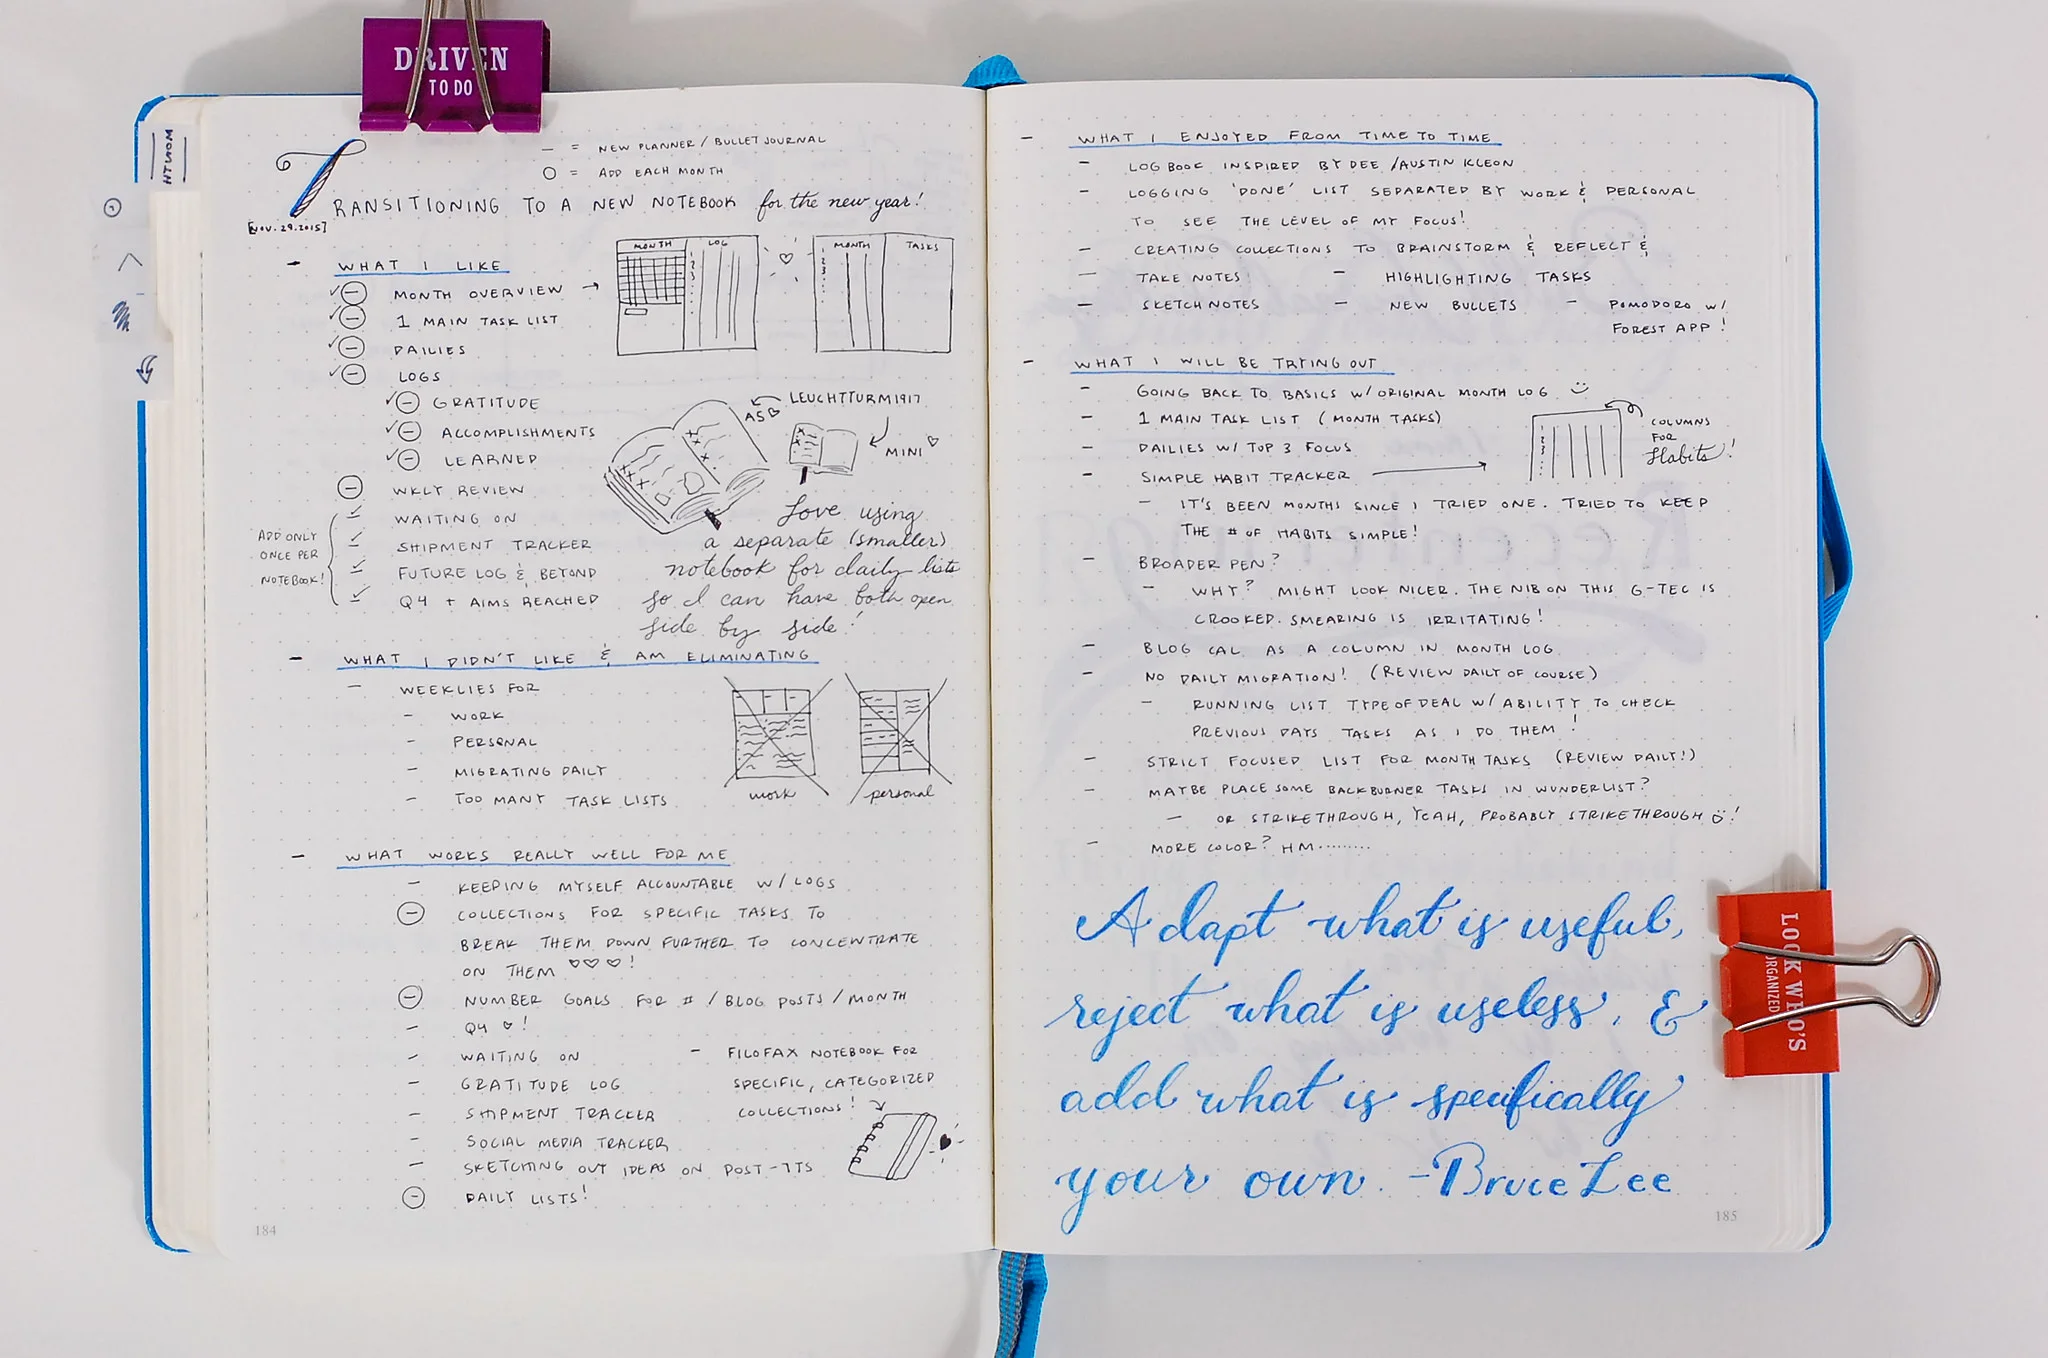 DRIVEN
TO DO
MONTH
— = NEW PLANNER / BULLET JOURNAL
O = ADD EACH MONTH
TRANSITIONING TO A NEW NOTEBOOK for the new year!
[NOV. 29. 2015]
- WHAT I LIKE
MONTH OVERVIEW →
1 MAIN TASK LIST
DAILIES
LOGS
GRATITUDE
ACCOMPLISHMENTS
LEARNED
WKLY REVIEW
WAITING ON
SHIPMENT TRACKER
FUTURE LOG & BEYOND
Q4 + AIMS REACHED
ADD ONLY
ONCE PER
NOTEBOOK!
MONTH LOG
1
2
3
MONTH TASKS
1
2
3
LEUCHTTURM1917
A5
MINI
Love using
a separate (smaller)
notebook for daily lists
so I can have both open
side by side!
- WHAT I DIDN'T LIKE & AM ELIMINATING
- WEEKLIES FOR
- WORK
- PERSONAL
- MIGRATING DAILY
- TOO MANY TASK LISTS
work
personal
- WHAT WORKS REALLY WELL FOR ME
- KEEPING MYSELF ACCOUNTABLE W/ LOGS
COLLECTIONS FOR SPECIFIC TASKS TO
BREAK THEM DOWN FURTHER TO CONCENTRATE
ON THEM ♡♡♡!
NUMBER GOALS FOR # / BLOG POSTS / MONTH
- Q4 ♡!
- WAITING ON
- GRATITUDE LOG
- SHIPMENT TRACKER
- SOCIAL MEDIA TRACKER
- SKETCHING OUT IDEAS ON POST-ITS
DAILY LISTS!
- FILOFAX NOTEBOOK FOR
SPECIFIC, CATEGORIZED
COLLECTIONS!
184
- WHAT I ENJOYED FROM TIME TO TIME
- LOGBOOK INSPIRED BY DEE / AUSTIN KLEON
- LOGGING 'DONE' LIST SEPARATED BY WORK & PERSONAL
TO SEE THE LEVEL OF MY FOCUS!
- CREATING COLLECTIONS TO BRAINSTORM & REFLECT &
- TAKE NOTES - HIGHLIGHTING TASKS
- SKETCHNOTES - NEW BULLETS - POMODORO W/
FOREST APP!
- WHAT I WILL BE TRYING OUT
- GOING BACK TO BASICS W/ ORIGINAL MONTH LOG
- 1 MAIN TASK LIST (MONTH TASKS)
- DAILIES W/ TOP 3 FOCUS
- SIMPLE HABIT TRACKER
COLUMNS
FOR
Habits!
1
2
3
- IT'S BEEN MONTHS SINCE I TRIED ONE. TRIED TO KEEP
THE # OF HABITS SIMPLE!
- BROADER PEN?
- WHY? MIGHT LOOK NICER. THE NIB ON THIS G-TEC IS
CROOKED. SMEARING IS IRRITATING!
- BLOG CAL AS A COLUMN IN MONTH LOG
- NO DAILY MIGRATION! (REVIEW DAILY OF COURSE)
- RUNNING LIST TYPE OF DEAL W/ ABILITY TO CHECK
PREVIOUS DAYS TASKS AS I DO THEM!
- STRICT FOCUSED LIST FOR MONTH TASKS (REVIEW DAILY!)
- MAYBE PLACE SOME BACKBURNER TASKS IN WUNDERLIST?
- OR STRIKETHROUGH, YEAH, PROBABLY STRIKETHROUGH!
- MORE COLOR? HM.........
Adapt what is useful,
reject what is useless, &
add what is specifically
your own. -Bruce Lee
185
LOOK WHO'S
ORGANIZED